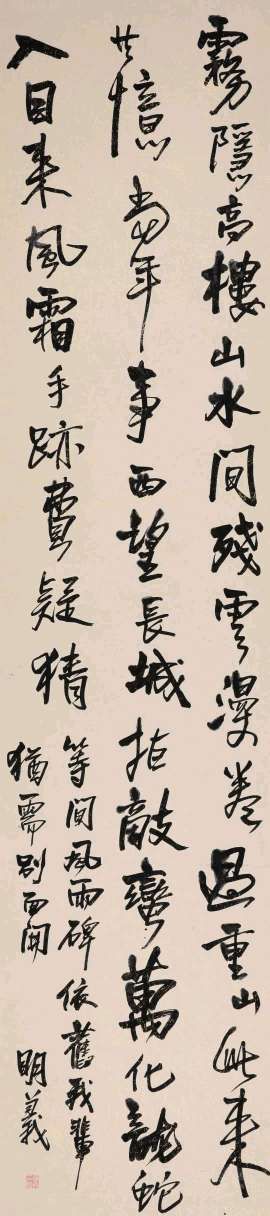 霧隱高樓山水間殘雲漫卷過重山此来
共憶當年事西望長城拒敵蠻萬化龍蛇
入目来風霜手跡費疑猜
等閒風雨碑依舊我輩
猶需別面開
明義